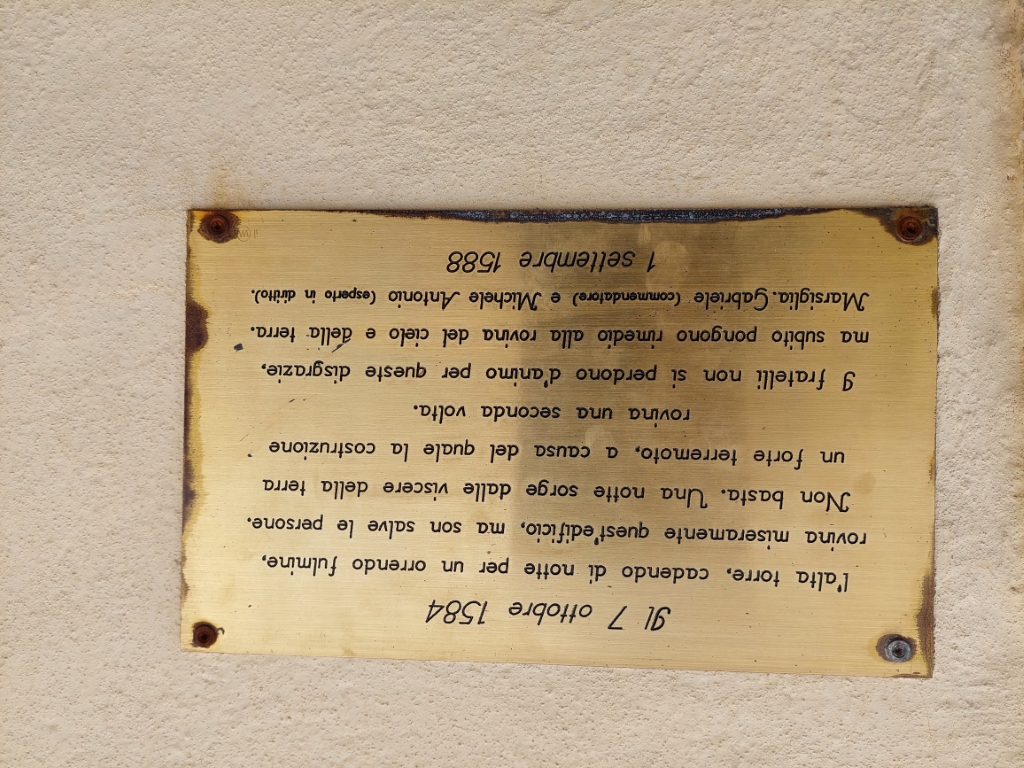 Il 7 ottobre 1584
l'alta torre, cadendo di notte per un orrendo fulmine,
rovina miseramente quest'edificio, ma son salve le persone.
Non basta. Una notte sorge dalle viscere della terra
un forte terremoto, a causa del quale la costruzione
rovina una seconda volta.
I fratelli non si perdono d'animo per queste disgrazie,
ma subito pongono rimedio alla rovina del cielo e della terra.
Marsiglia. Gabriele (commendatore) e Michele Antonio (esperto in diritto).
1 settembre 1588